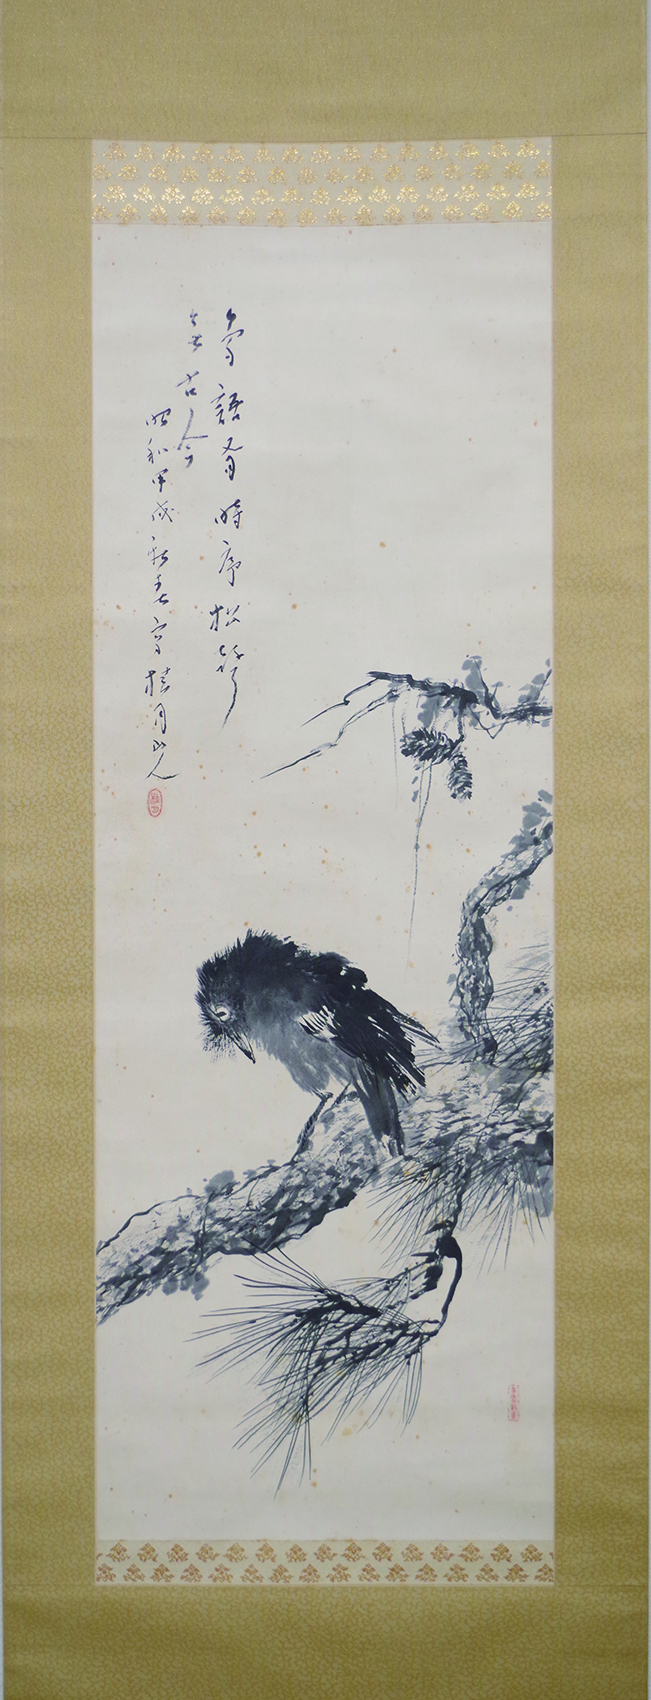 鳥語有時序松聲
無古今
昭和甲戌新春寫桂月山人